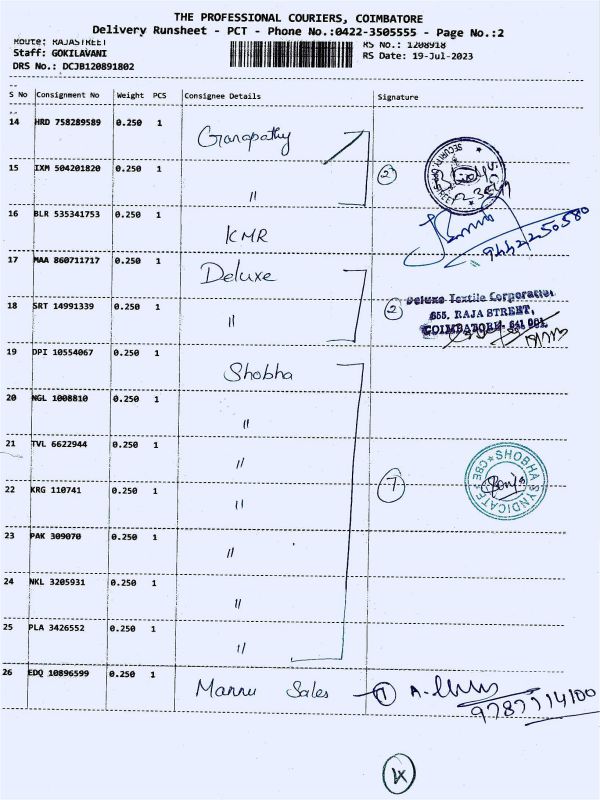 THE PROFESSIONAL COURIERS, COIMBATORE
Delivery Runsheet - PCT - Phone No.:0422-3505555 - Page No.:2
Route: RAJASTREET
RS No.: 1208918
Staff: GOKILAVANI
RS Date: 19-Jul-2023
DRS No.: DCJB120891802
S No Consignment No Weight PCS Consignee Details Signature
14 HRD 758289589 0.250 1 Ganapathy
15 IXM 504201820 0.250 1 〃 2
SECURITY OFFICE
16 BLR 535341753 0.250 1 KMR
9442250580
17 MAA 860711717 0.250 1 Deluxe
18 SRT 14991339 0.250 1 〃 2
Deluxe Textile Corporation
655, RAJA STREET,
COIMBATORE- 641 001.
19 DPI 10554067 0.250 1 Shobha
20 NGL 1008810 0.250 1 〃
21 TVL 6622944 0.250 1 〃
22 KRG 110741 0.250 1 〃 7
SHOBHA SYNDICATE CBE
23 PAK 309070 0.250 1 〃
24 NKL 3205931 0.250 1 〃
25 PLA 3426552 0.250 1 〃
26 EDQ 10896599 0.250 1 Mannu Sales 1